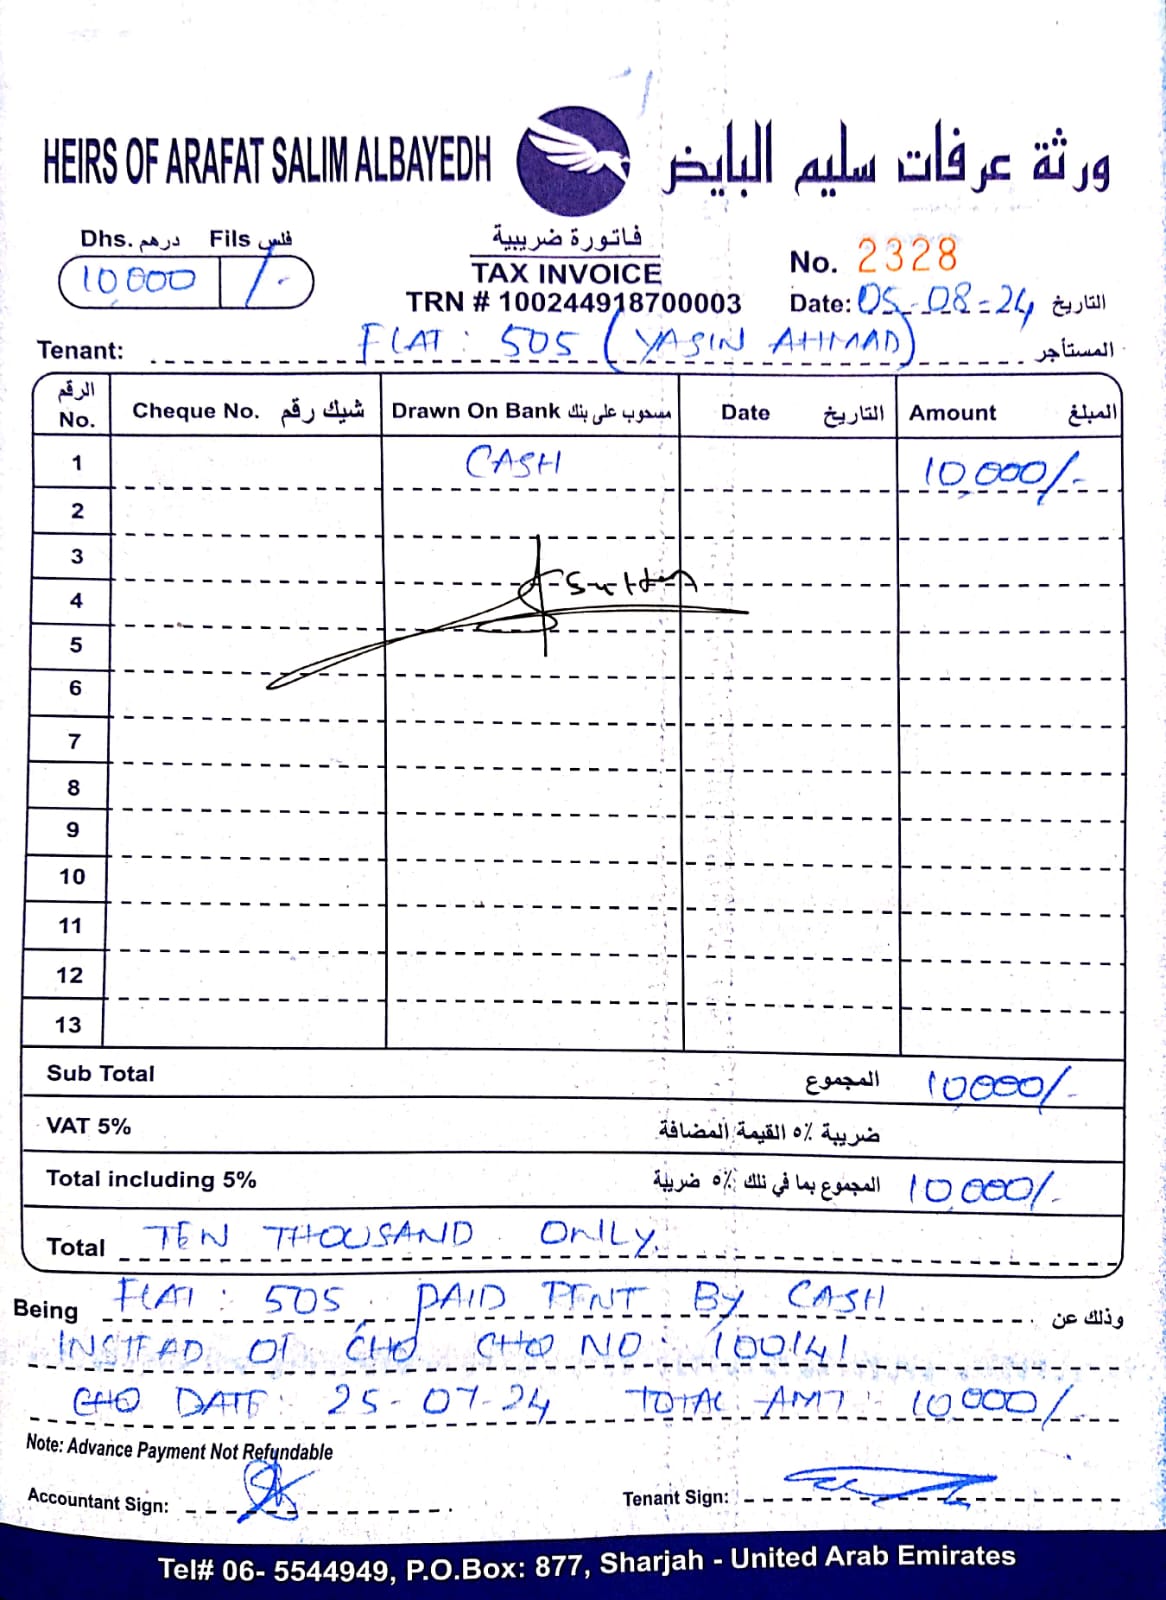 HEIRS OF ARAFAT SALIM ALBAYEDH ورثة عرفات سليم البايض
Dhs. درهم Fils فلس
10,000 /-
فاتورة ضريبية
TAX INVOICE
TRN # 100244918700003
No. 2328
Date: 05-08-24 التاريخ
Tenant: FLAT: 505 (YASIN AHMAD) المستأجر
الرقم No. Cheque No. شيك رقم Drawn On Bank مسحوب على بنك Date التاريخ Amount المبلغ
1 CASH 10,000/-
2
3
4
5
6
7
8
9
10
11
12
13
Sub Total المجموع 10,000/-
VAT 5% ضريبة ٥٪ القيمة المضافة
Total including 5% المجموع بما في ذلك ٥٪ ضريبة 10,000/-
Total TEN THOUSAND ONLY.
Being FLAT: 505. PAID RENT By CASH وذلك عن
INSTEAD OF CHQ CHQ NO: 100141
CHQ DATE: 25-07-24 TOTAL AMT: 10,000/-
Note: Advance Payment Not Refundable
Accountant Sign: Tenant Sign:
Tel# 06- 5544949, P.O.Box: 877, Sharjah - United Arab Emirates